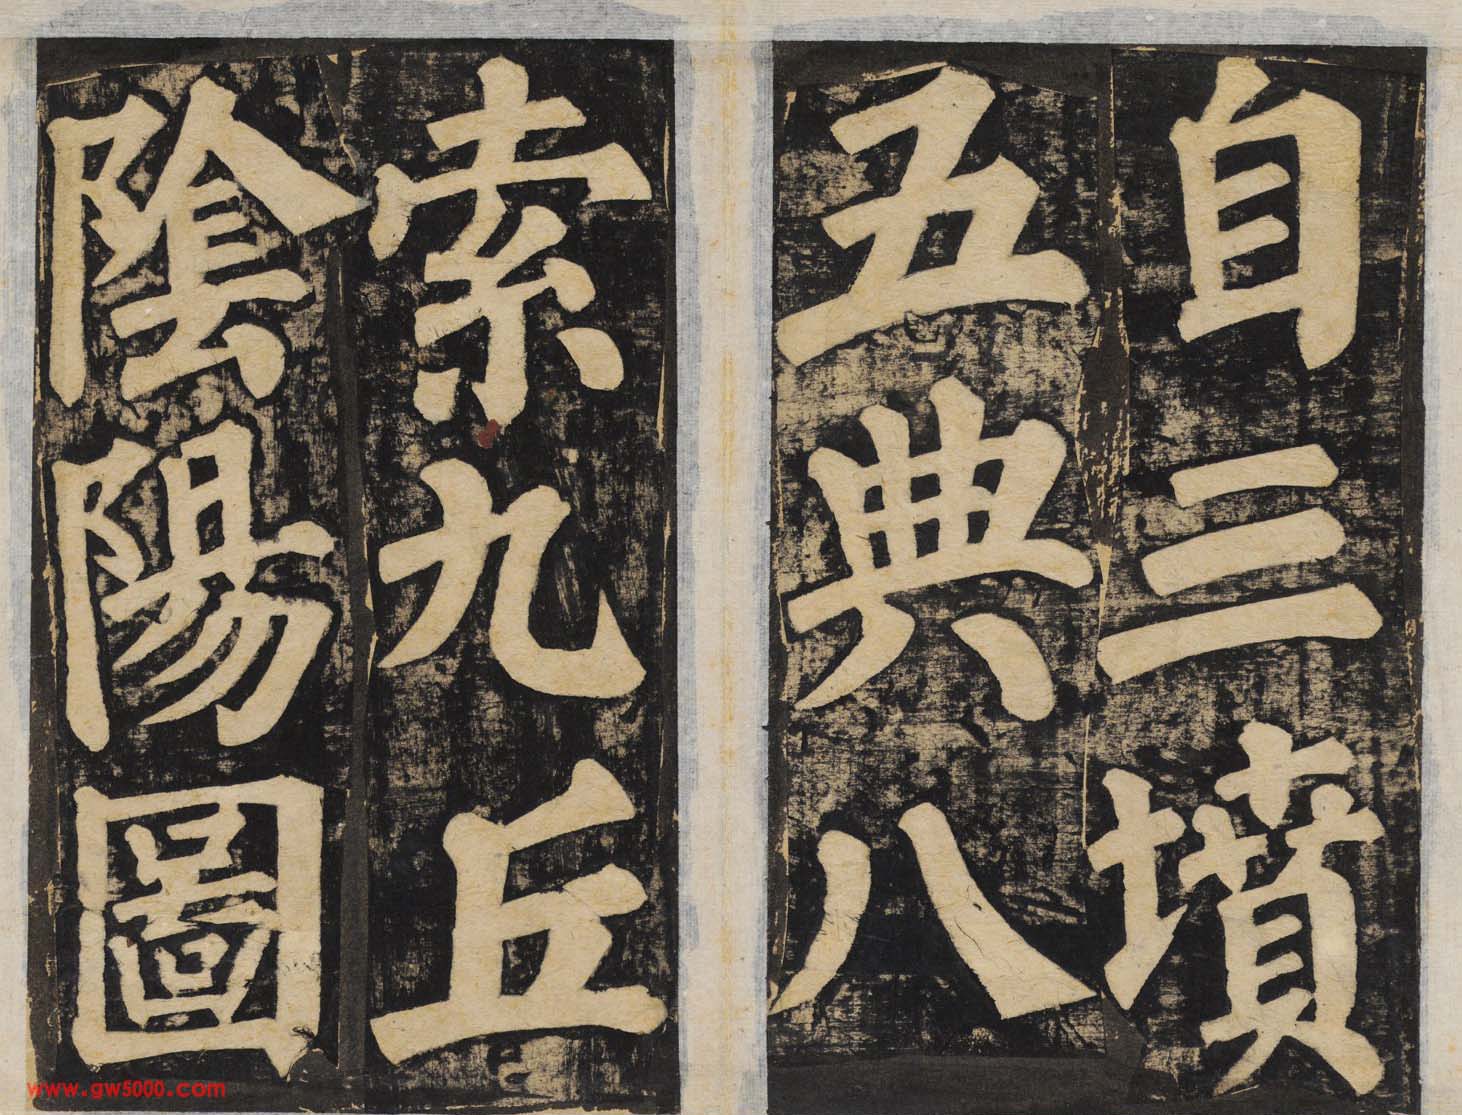 自三墳
五典八
索九丘
陰陽圖
www.gw5000.com